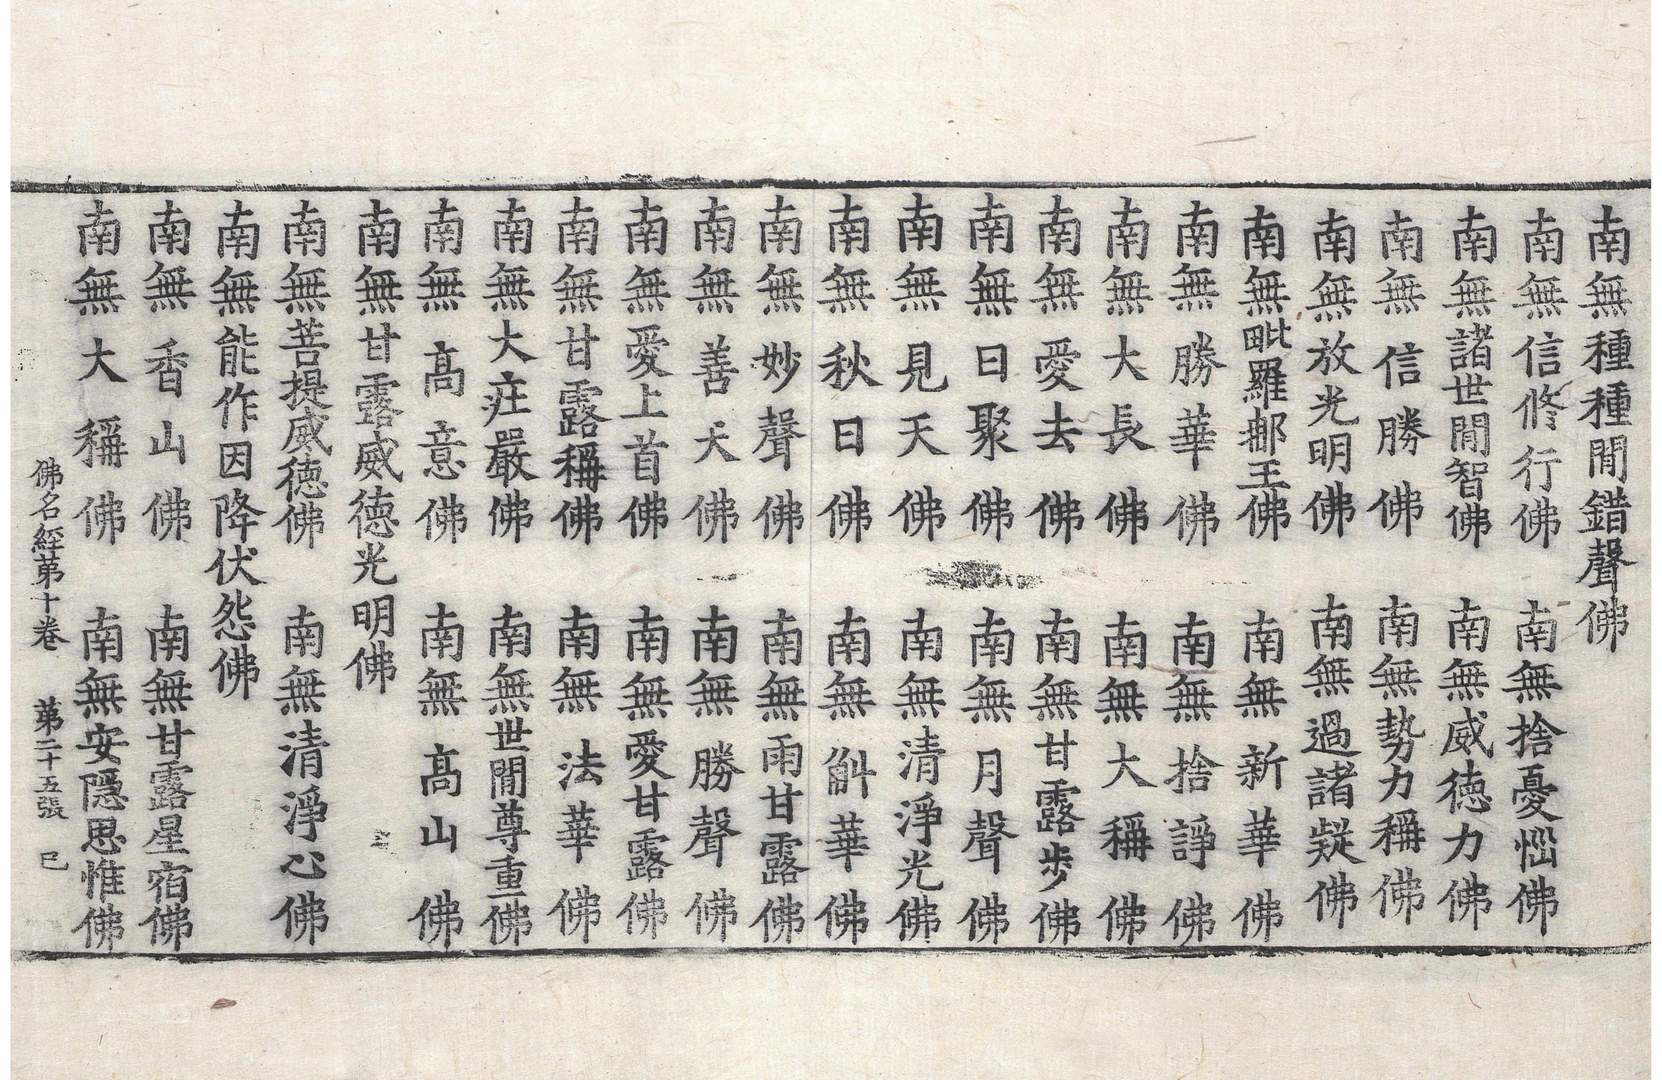 南無種種閒錯聲佛
南無信修行佛 南無捨憂惱佛
南無諸世閒智佛 南無威徳力佛
南無信勝佛 南無勢力稱佛
南無放光明佛 南無過諸疑佛
南無毗羅那王佛 南無新華佛
南無勝華佛 南無捨諍佛
南無大長佛 南無大稱佛
南無愛去佛 南無甘露步佛
南無日聚佛 南無月聲佛
南無見天佛 南無清淨光佛
南無秋日佛 南無斛華佛
南無妙聲佛 南無雨甘露佛
南無善天佛 南無勝聲佛
南無愛上首佛 南無愛甘露佛
南無甘露稱佛 南無法華佛
南無大庄嚴佛 南無世閒尊重佛
南無髙意佛 南無髙山佛
南無甘露威徳光明佛
南無菩提威徳佛 南無清淨心佛
南無能作因降伏怨佛
南無香山佛 南無甘露星宿佛
南無大稱佛 南無安隱思惟佛
佛名經苐十卷 苐二十五張 巳